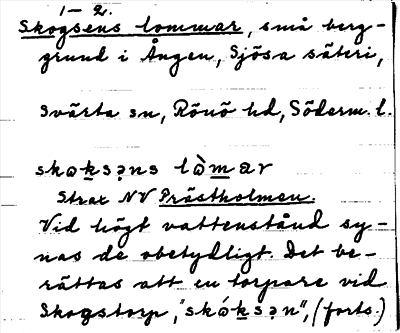 1 – 2.
Skogsens lommar, små berg-
grund i Ången, Sjösa säteri,
Svärta sn, Rönö hd, Söderm. l.
skoksəns lòmar
Strax NV Prästholmen.
Vid högt vattenstånd sy-
nas de obetydligt. Det be-
rättas att en torpare vid
Skogstorp, "skóksən", (forts.)